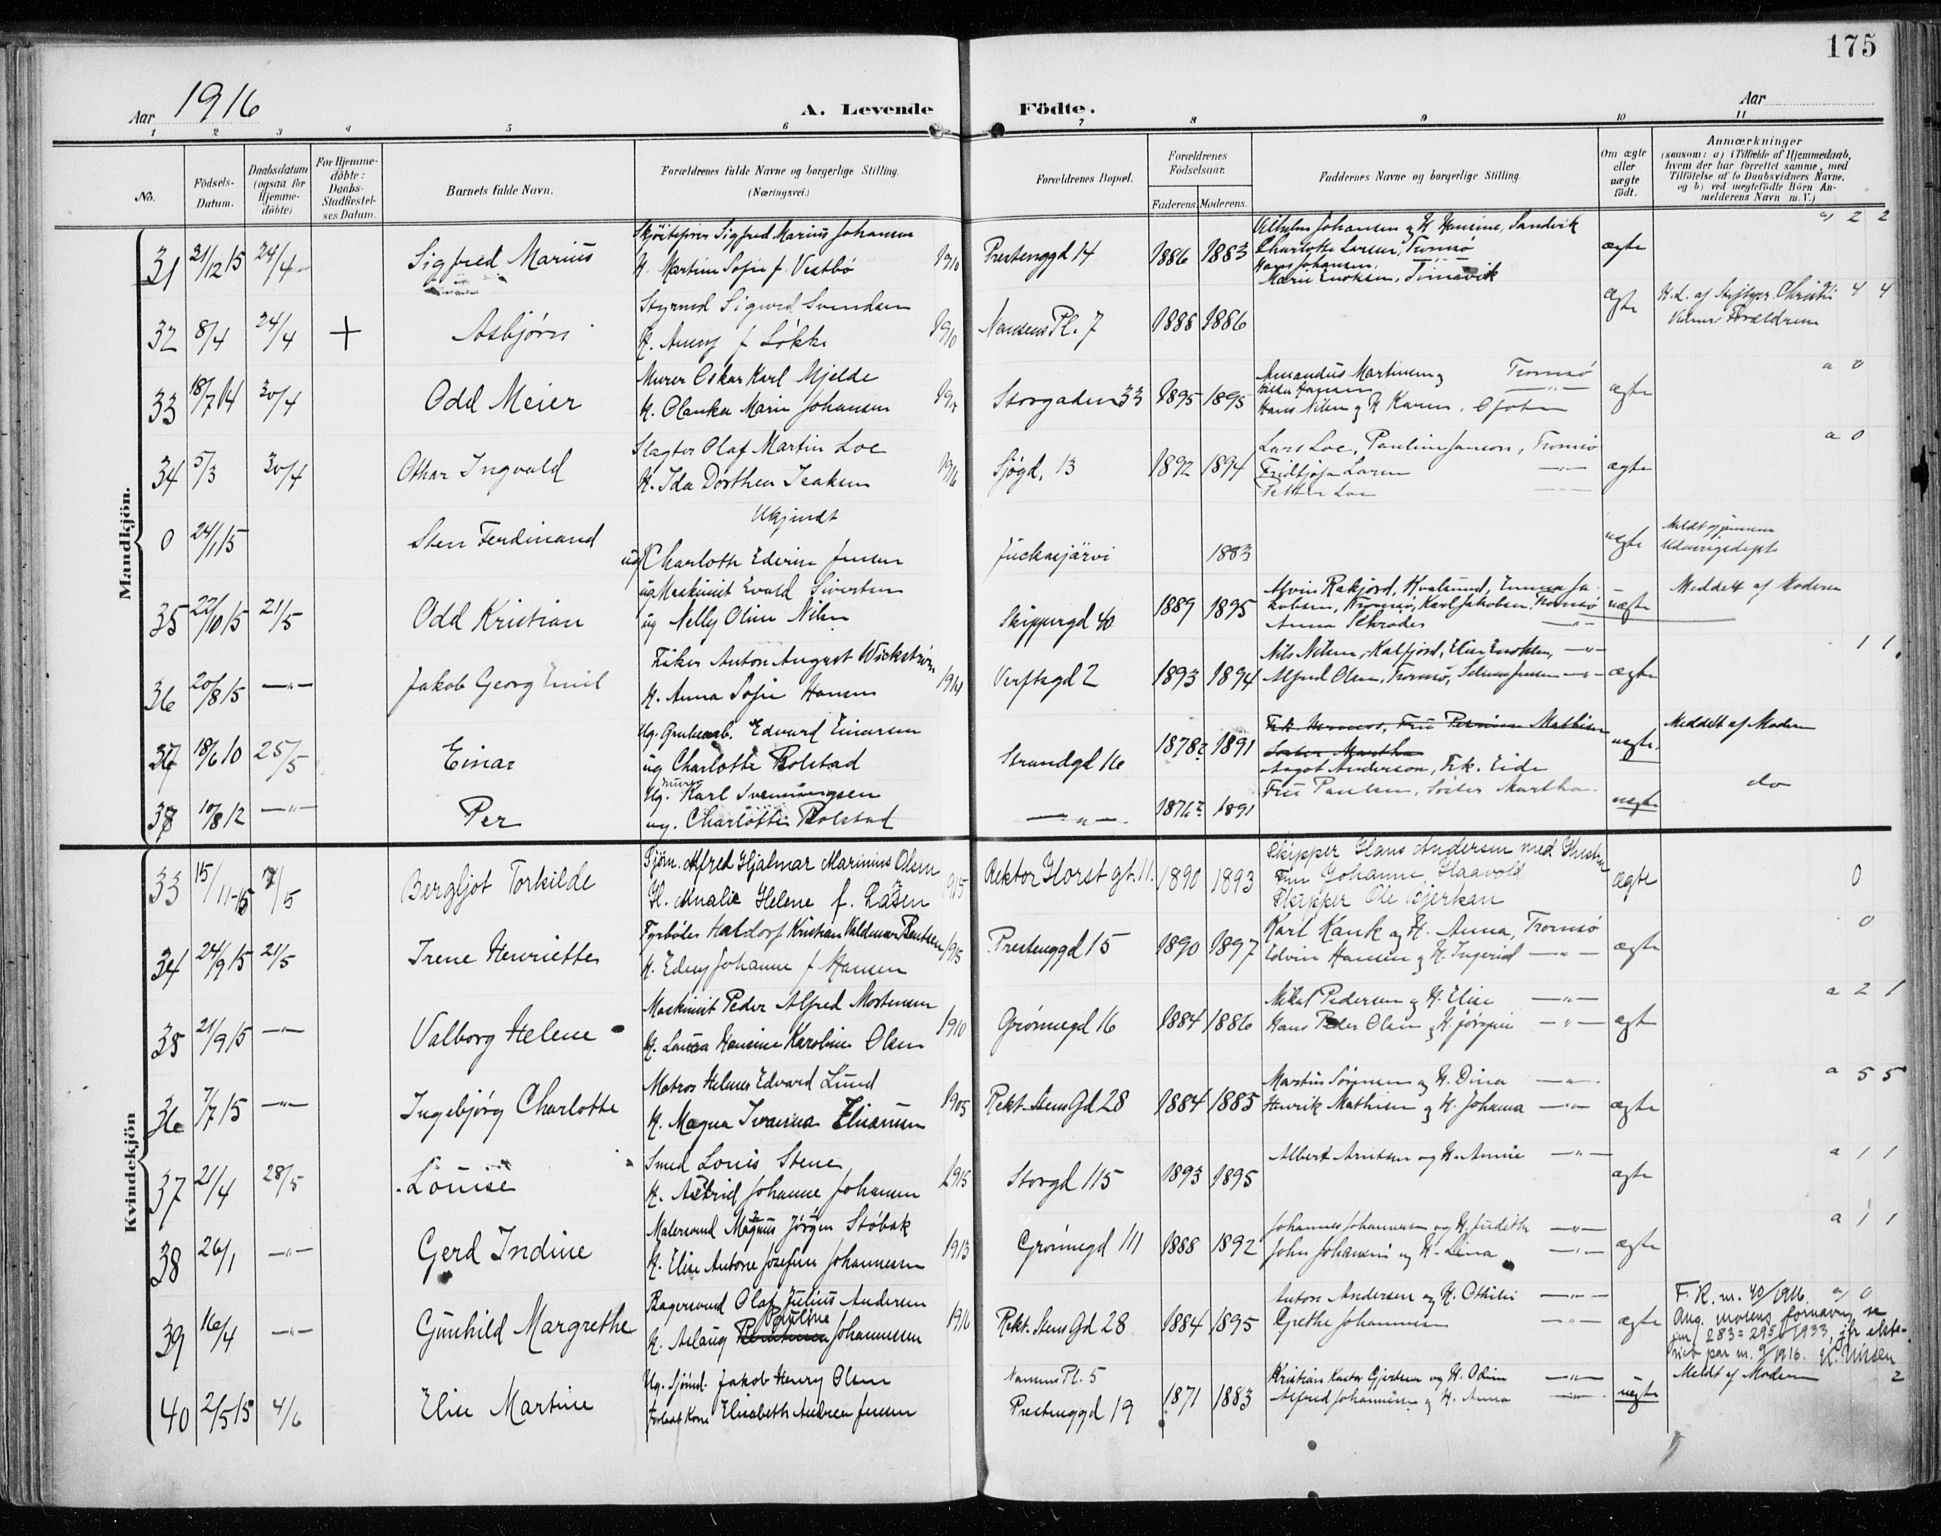 175
Aar 1916
A. Levende Födte.
Aar
1 2 3 4 5 6 7 8 9 10 11
No.
Födsels-Datum.
Daabsdatum (ogsaa for Hjemme-döbte)
For Hjemme-döbte: Daabs-Stadfæstel-ses Datum.
Barnets fulde Navn.
Forældrenes fulde Navne og borgerlige Stilling. (Næringsvei.)
Forældrenes Bopæl.
Forældrenes Födselsaar.
Faderens. Moderens.
Faddernes Navne og borgerlige Stilling.
Om ægte eller uægte födt.
Anmærkninger
(saasom: a) i Tilfælde af Hjemmedaab, hvem der har forrettet samme, med Tilföielse af to Daabsvidners Navne, og b) ved uægtefödte Börn An-melderens Navn m. V.)
Mandkjön.
31 21/12 15 24/4 Sigfred Marius
Sigfred Marius Johansen 1910
H. Martine Sofie f. Vestbö
Prestenggd 14 1886 1883
Vilhelm Johansen og H. Hansine, Sandvik
Charlotte Larsen, Tromsø
Hans Johansen,
Marie Enoksen, ægte
a 2 2
32 8/4 24/4 + Asbjørn
Styrmd Sigurd Svendsen 1910
H. Anny f Løkke
Nansens Pl. 7 1888 1886 ægte
H.d. af 4 4
Forældrene
33 18/7 14 30/4 Odd Meier
Murer Oskar Karl Mjelde
H. Olanka Marie Johansen
Storgaden 33 1895 1895
Amandus Martinsen og Tromsø
Hilda Hansen —"—
Hans Nilsen og H Karen, ægte
a 0
34 5/3 30/4 Othar Ingvald
Slagter Olaf Martin Loe 1916
H. Ida Dorthea Isaksen
Sjøgd. 13 1892 1894
Lars Loe, Pauline Jensen, Tromsø
Fridtjof Larsen —"—
Petter Loe ægte
a 0
0 24/1 15 Sten Ferdinand
Ukjendt
ug Charlotte Edevine Jensen
Juckasjärvi 1883 uægte
Meldt gjennem
35 22/10 15 21/5 Odd Kristian
ug Maskinist Evald Sivertsen
ug Nelly Oline Nilsen
Skippergd 40 1889 1895
Alvin Rakfjord, Kvalsund, Emma Ja-
kobsen, Tromsø, Karl Jakobsen, Tromsø
Anna Schrøder —"— uægte
Meddelt af Moderen
36 20/8 15 —"— Jakob Georg Emil
Fisker Anton August Wickstrøm 1914
H. Anna Sofie Hansen
Verftsgd 2 1893 1894
Nils Nilsen, Kalfjord, Elise Enoksen, —"—
Alfred Olsen, Tromsø, Selma Jensen —"— ægte
1 1
37 18/6 10 25/5 Einar
Ug. Grubearb. Edvard Einarsen
ug Charlotte Rolstad
Strandgd 16 1878? 1891
Mathisen
Søster Martha
Aagot Anderson, Frk. Eide uægte.
Meddelt af Moderen
38 10/8 12 —"— Per
Ug. Murer Karl Svenningsen
ug. Charlotte Rolstad
—"— 1876? 1891
Fru Paulsen, Søster Martha uægte
do
Kvindekjön
33 15/11-15 7/5 Bergljot Torkilde
Sjøm. Alfred Hjalmar Marinius Olsen 1915
H. Amalie Helene f. Rasen
Rektor Horst gt. 11. 1890 1893
Skipper Hans Andersen med Hustru
Fru Johanne Haavold
Skipper Ole Bjerkan ægte
0
34 24/9 15 21/5 Irene Henriette
Fyrbøter Haldorf Kristian Valdemar Bentsen 1915
H. Edny Johanne f Hansen
Prestenggd 15 1890 1897
Karl Kank og H. Anna, Tromsø
Edvin Hansen og H. Ingerid —"— ægte
0
35 21/9 15 —"— Valborg Helene
Maskinist Peder Alfred Mortensen 1910
H. Laura Hansine Karoline Olsen
Grønnegd 16 1884 1886
Mikal Pedersen og H. Elise —"—
Hans Peder Olsen og H. Jørgine —"— ægte
a 2 1
36 7/7 15 —"— Ingebjørg Charlotte
Matros Helmer Edvard Lund 1905
H. Magna Ivarina Eliasen
Rekt. Stens Gd 28 1884 1885
Martin Sørensen og H. Dina —"—
Henrik Mathisen og H. Johanna —"— ægte
a 5 5
37 21/4 28/5 Louise
Smed Louis Stene 1915
H. Astrid Johanne Johansen
Storgd 115 1893 1895
Albert Arntsen og H. Annie —"— ægte
a 1 1
38 26/1 —"— Gerd Indine
Malersvend Magnus Jörgen Støbak 1913
H. Elise Antone Josefine Johannesen
Grønnegd 111 1888 1892
Johannes Johannesen og H. Judithe —"—
John Johansen og H. Lina —"— ægte
a 1 1
39 16/4 —"— Gunhild Margrethe
Bagersvend Olaf Julius Andersen 1916
Pauline
H. Aslaug Johannesen
Rekt. Stens Gd 28 1884 1895
Anton Andersen og H. Othilie —"—
Grethe Johannesen —"— ægte
F. R. nr. 40/1916. a 0
Ang. morens fornavn, se
jnr 283 = 295/1933, jfr ekte-
viet par nr. 9/1916. K. Nissen
40 2/5 15 4/6 Elise Martine
Ug. Sjømd. Jakob Henry Olsen
forlatt Kone Elisabeth Andrea Jensen
Nansens Pl. 5
Prestenggd 19 1871 1883
Kristian Kastor Gjertsen og H. Oline —"—
Alfred Johannesen og H. Anna —"— uægte
Meldt af Moderen 2